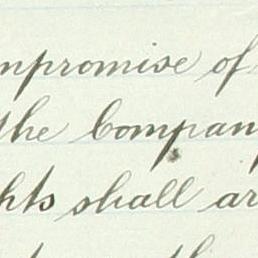 mpromise of
the Compan
hts shall ar